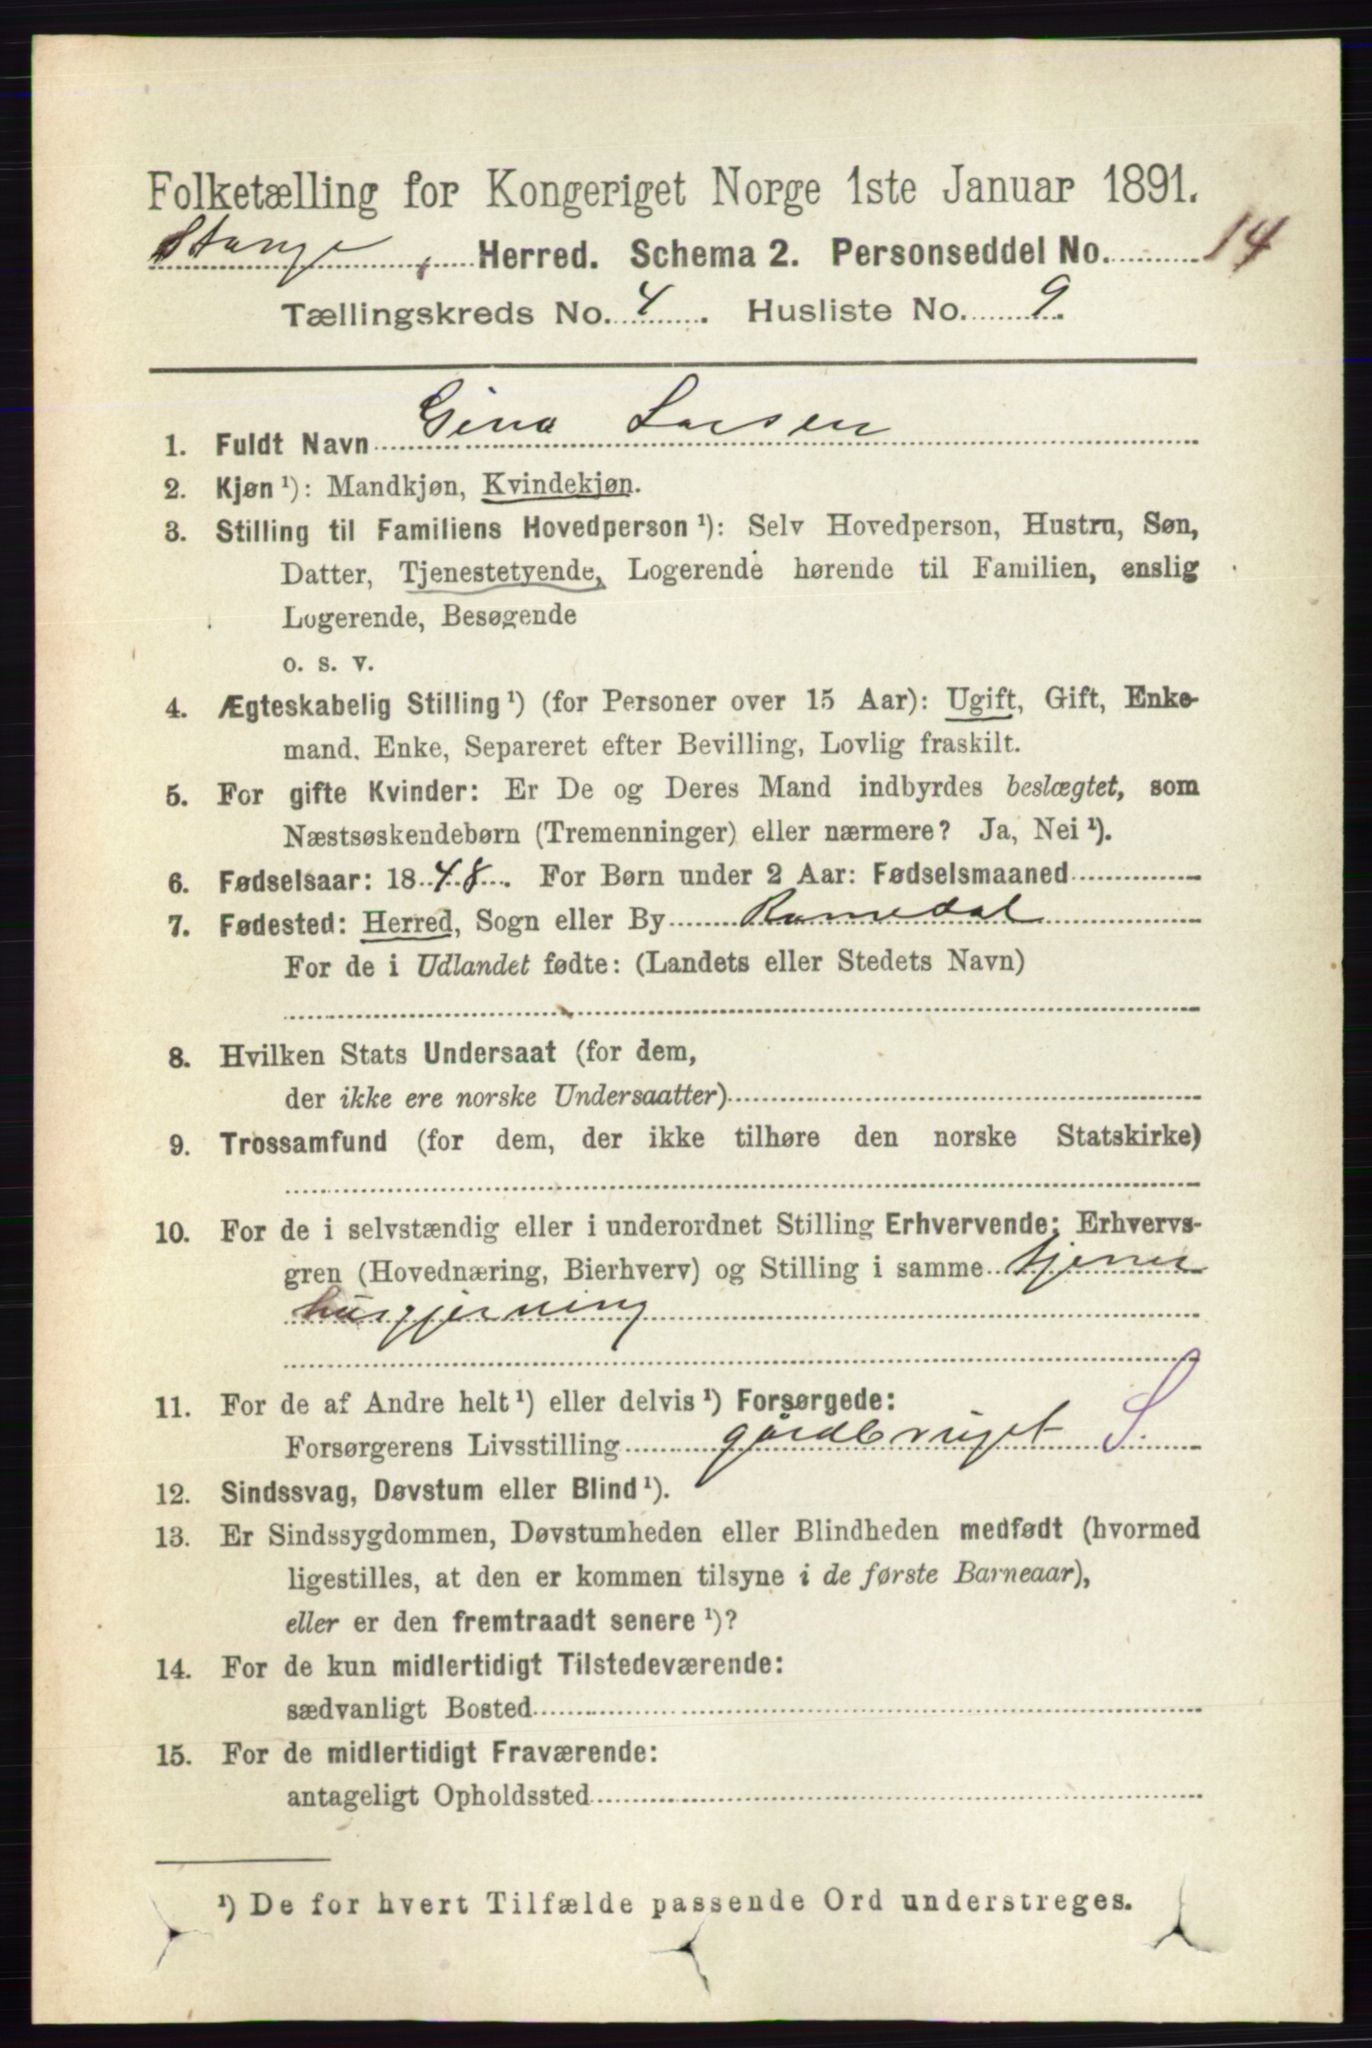 Folketælling for Kongeriget Norge 1ste Januar 1891.
Stange, Herred. Schema 2. Personseddel No. 14
Tællingskreds No. 4. Husliste No. 9.
1. Fuldt Navn Gina Larsen
2. Kjøn¹): Mandkjøn, Kvindekjøn.
3. Stilling til Familiens Hovedperson¹): Selv Hovedperson, Hustru, Søn,
Datter, Tjenestetyende, Logerende hørende til Familien, enslig
Logerende, Besøgende
o. s. v.
4. Ægteskabelig Stilling¹) (for Personer over 15 Aar): Ugift, Gift, Enke-
mand, Enke, Separeret efter Bevilling, Lovlig fraskilt.
5. For gifte Kvinder: Er De og Deres Mand indbyrdes beslægtet, som
Næstsøskendebørn (Tremenninger) eller nærmere? Ja, Nei¹).
6. Fødselsaar: 1848. For Børn under 2 Aar: Fødselsmaaned
7. Fødested: Herred, Sogn eller By Romedal
For de i Udlandet fødte: (Landets eller Stedets Navn)
8. Hvilken Stats Undersaat (for dem,
der ikke ere norske Undersaatter)
9. Trossamfund (for dem, der ikke tilhøre den norske Statskirke)
10. For de i selvstændig eller i underordnet Stilling Erhvervende: Erhvervs-
gren (Hovednæring, Bierhverv) og Stilling i samme tjener
husgjerning
11. For de af Andre helt¹) eller delvis¹) Forsørgede:
Forsørgerens Livsstilling gårdbruget S.
12. Sindssvag, Døvstum eller Blind¹).
13. Er Sindssygdommen, Døvstumheden eller Blindheden medfødt (hvormed
ligestilles, at den er kommen tilsyne i de første Barneaar),
eller er den fremtraadt senere¹)?
14. For de kun midlertidigt Tilstedeværende:
sædvanligt Bosted
15. For de midlertidigt Fraværende:
antageligt Opholdssted
¹) De for hvert Tilfælde passende Ord understreges.